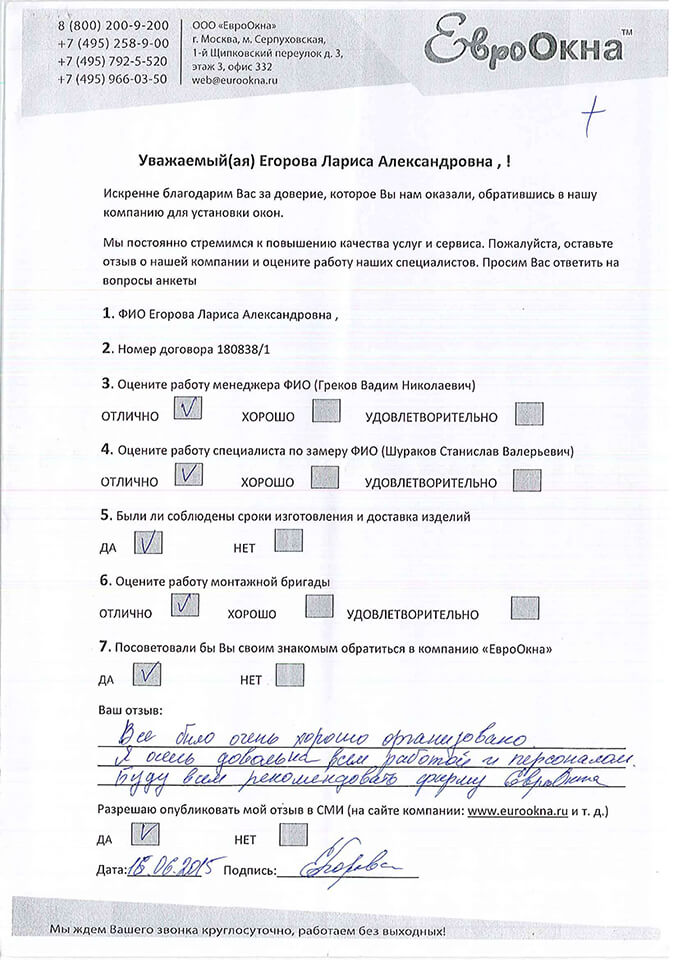 8 (800) 200-9-200
+7 (495) 258-9-00
+7 (495) 792-5-520
+7 (495) 966-03-50
ООО «ЕвроОкна»
г. Москва, м. Серпуховская,
1-й Щипковский переулок д. 3,
этаж 3, офис 332
web@eurookna.ru
ЕвроОкна™
Уважаемый(ая) Егорова Лариса Александровна , !
Искренне благодарим Вас за доверие, которое Вы нам оказали, обратившись в нашу
компанию для установки окон.
Мы постоянно стремимся к повышению качества услуг и сервиса. Пожалуйста, оставьте
отзыв о нашей компании и оцените работу наших специалистов. Просим Вас ответить на
вопросы анкеты
1. ФИО Егорова Лариса Александровна ,
2. Номер договора 180838/1
3. Оцените работу менеджера ФИО (Греков Вадим Николаевич)
ОТЛИЧНО ХОРОШО УДОВЛЕТВОРИТЕЛЬНО
4. Оцените работу специалиста по замеру ФИО (Шураков Станислав Валерьевич)
ОТЛИЧНО ХОРОШО УДОВЛЕТВОРИТЕЛЬНО
5. Были ли соблюдены сроки изготовления и доставка изделий
ДА НЕТ
6. Оцените работу монтажной бригады
ОТЛИЧНО ХОРОШО УДОВЛЕТВОРИТЕЛЬНО
7. Посоветовали бы Вы своим знакомым обратиться в компанию «ЕвроОкна»
ДА НЕТ
Ваш отзыв:
Все было очень хорошо организовано.
Я очень довольна всем работой и персоналом.
Буду всем рекомендовать фирму ЕвроОкна
Разрешаю опубликовать мой отзыв в СМИ (на сайте компании: www.eurookna.ru и т. д.)
ДА НЕТ
Дата: 18.06.2015 Подпись: Егорова
Мы ждем Вашего звонка круглосуточно, работаем без выходных!